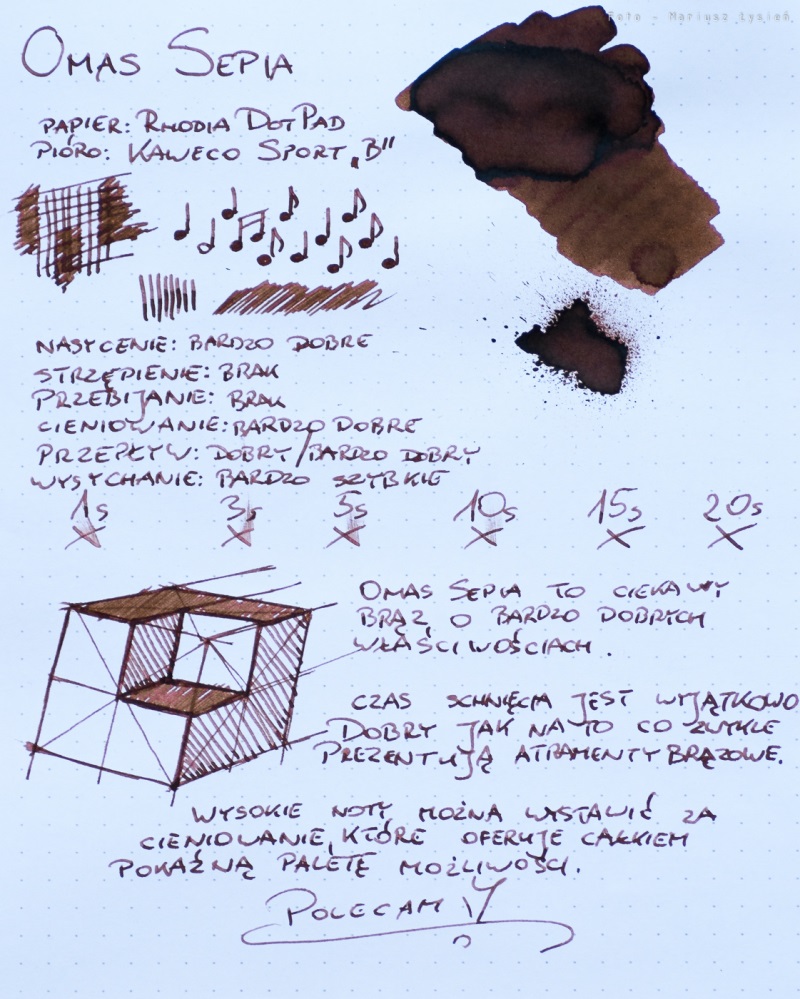 Foto - Mariusz Łysień
OMAS SEPIA
PAPIER: RHODIA DOTPAD
PIÓRO: KAWECO SPORT „B”
NASYCENIE: BARDZO DOBRE
STRZĘPIENIE: BRAK
PRZEBIJANIE: BRAK
CIENIOWANIE: BARDZO DOBRE
PRZEPŁYW: DOBRY/BARDZO DOBRY
WYSYCHANIE: BARDZO SZYBKIE
1s 3s 5s 10s 15s 20s
OMAS SEPIA TO CIEKAWY
BRĄZ O BARDZO DOBRYCH
WŁAŚCIWOŚCIACH.
CZAS SCHNIĘCIA JEST WYJĄTKOWO
DOBRY JAK NA TO CO ZWYKLE
PREZENTUJĄ ATRAMENTY BRĄZOWE.
WYSOKIE NOTY MOŻNA WYSTAWIĆ ZA
CIENIOWANIE, KTÓRE OFERUJE CAŁKIEM
POKAŹNĄ PALETĘ MOŻLIWOŚCI.
POLECAM